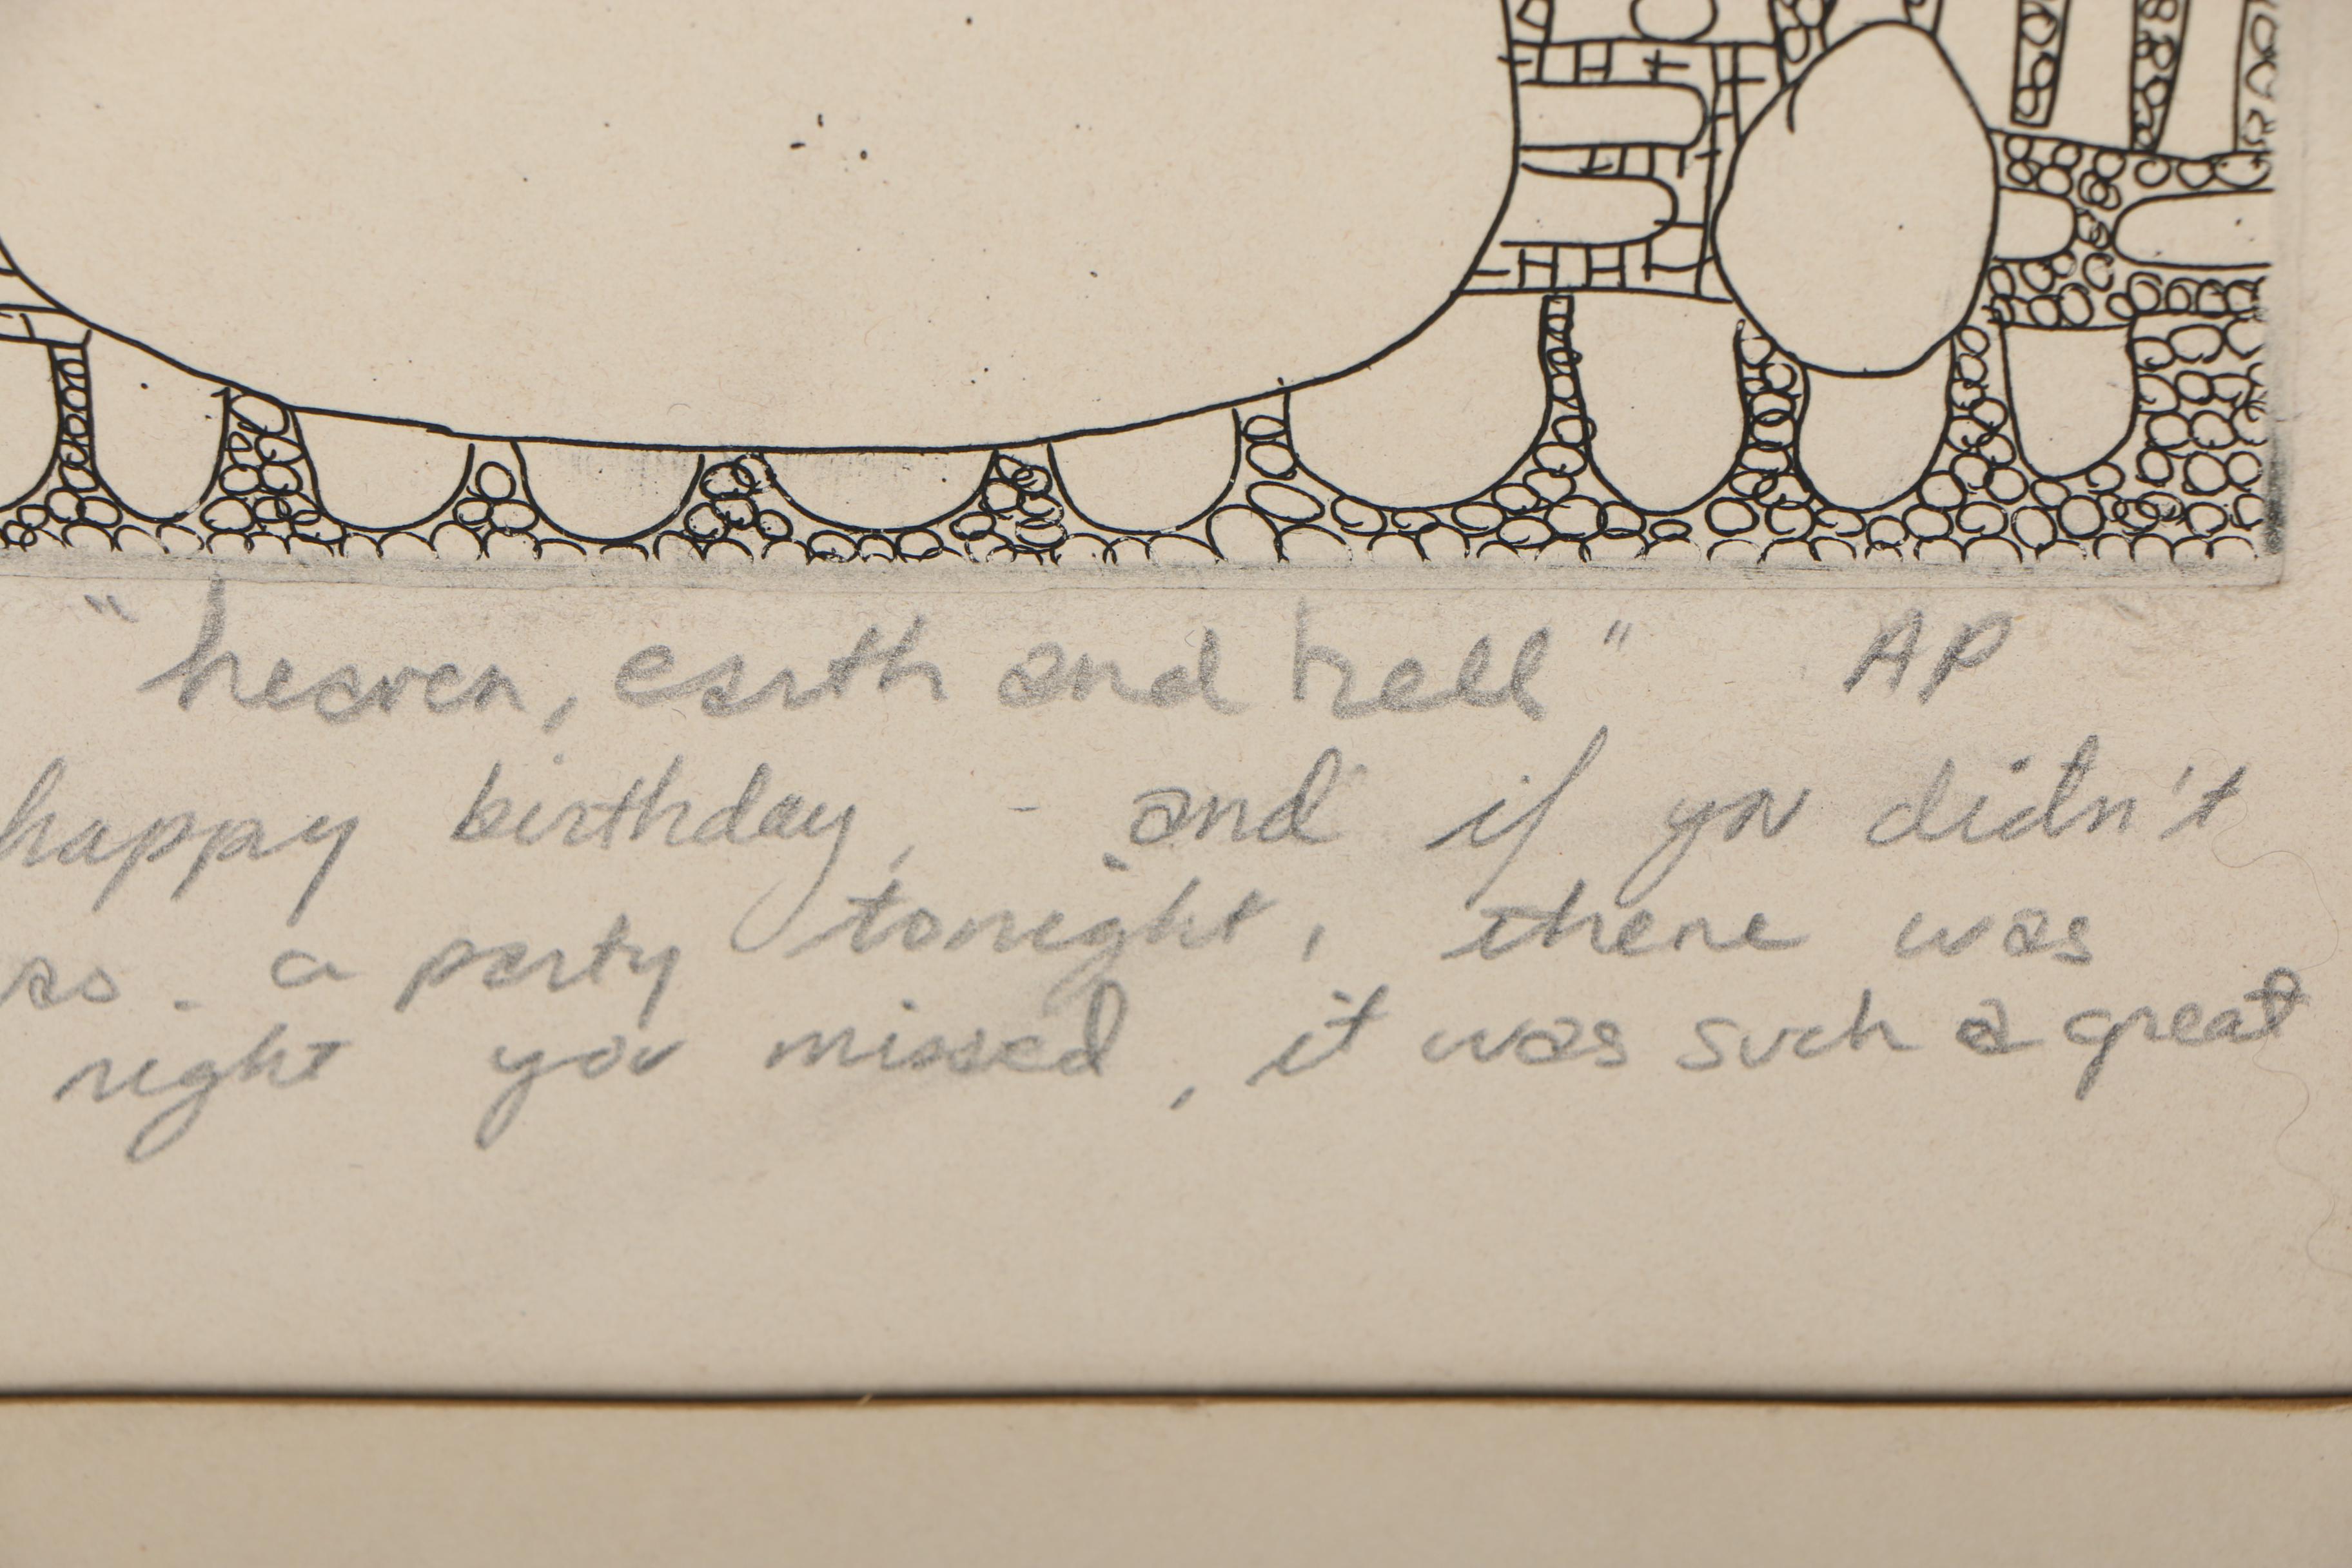 "heaven, earth and hell" AP
happy birthday, - and if you didn't
so. a party tonight, there was
right you missed, it was such a great